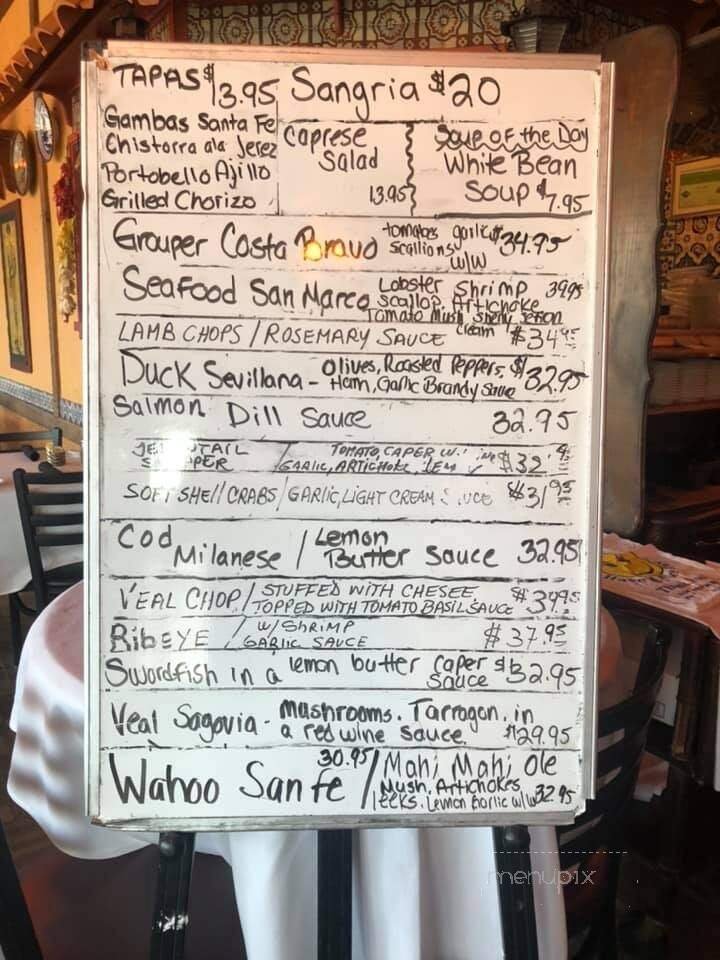 TAPAS $13.95 Sangria $20
Gambas Santa Fe
Chistorra ala Jerez
Portobello Ajillo
Grilled Chorizo
Caprese
Salad
13.95
Soup OF the Day
White Bean
Soup $7.95
Grouper Costa Bravo tomatoes garlic $34.95
scallions
w/w
SeaFood San Marco Lobster Shrimp 39.95
Scallop, Artichoke
Tomato Mush Sherry
Cream
LAMB CHOPS / ROSEMARY SAUCE $34.95
Duck Sevillana - Olives, Roasted Peppers, $32.95
Ham, Garlic Brandy Sauce
Salmon Dill Sauce 32.95
TAIL TOMATO, CAPER W.
PER GARLIC, ARTICHOKE, $32
SOFT SHELL CRABS / GARLIC, LIGHT CREAM $31.95
Cod Milanese / Lemon
Butter Sauce 32.95
VEAL CHOP / STUFFED WITH CHESEE $39.95
TOPPED WITH TOMATO BASIL SAUCE
RibEYE / W/ ShRIMP $37.95
GARLIC SAUCE
Swordfish in a lemon butter caper $32.95
Sauce
Veal Sagovia - Mushrooms. Tarragon. in
a red wine sauce $29.95
Wahoo San fe 30.95 / Mahi Mahi Ole
Mush. Artichokes
leeks. Lemon Garlic w/w 32.95
menupix